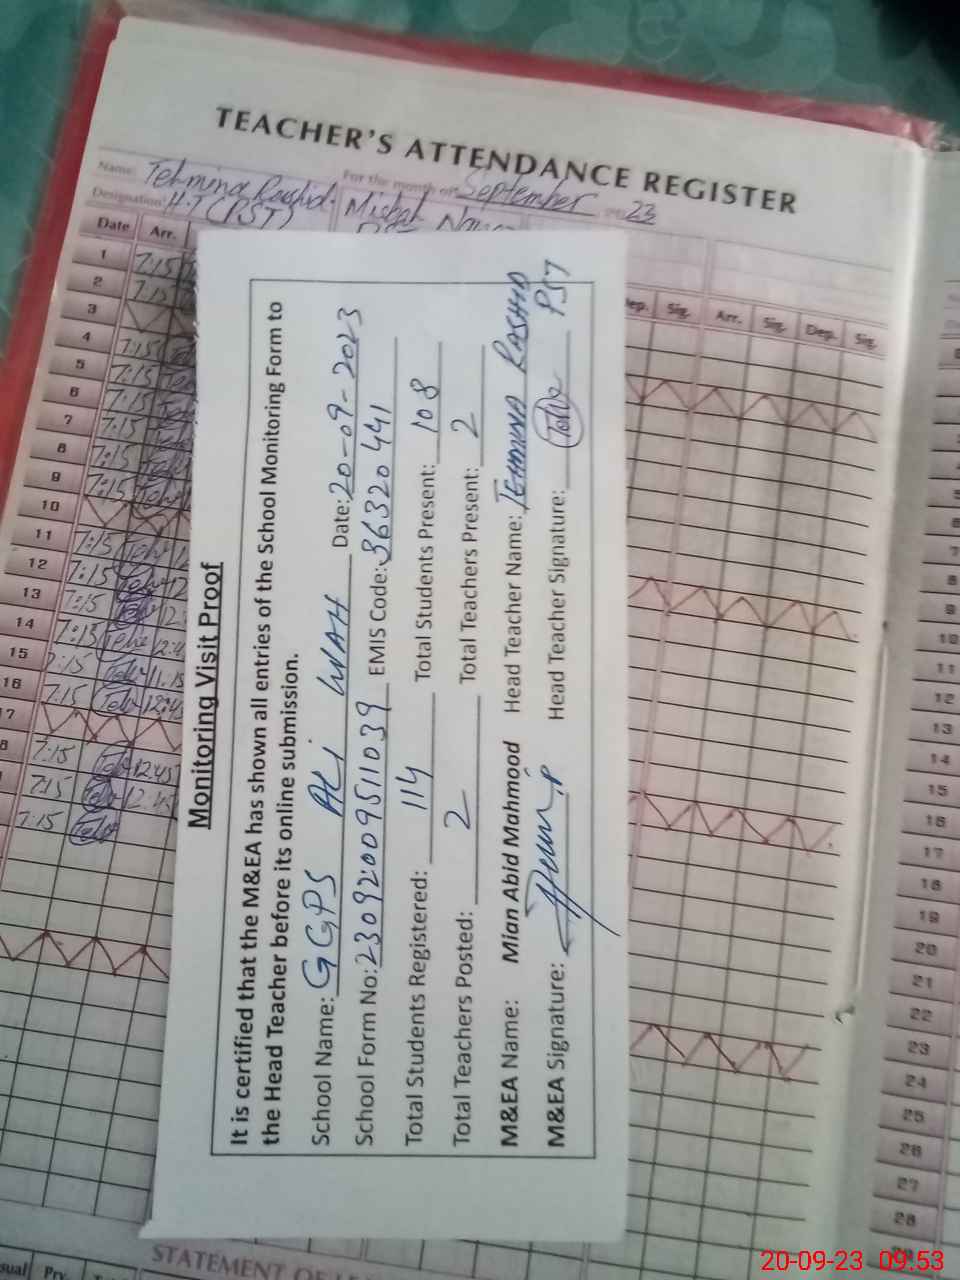 TEACHER'S ATTENDANCE REGISTER
Name: Tehmina Rashid. For the month of September 23
Designation: H.T (PST) Misbah
Date Arr.
ep. Sig. Arr. Sig. Dep. Sig.
1 7:15
2 7:15
3
4 7:15
5 7:15
6 7:15
7 7:15
8 7:15
9 7:15
10
11 7:15
12 7:15
13 7:15
14 7:15
15 7:15 11.15
16 7:15 12:45
17
7:15 12:45
7:15
7:15
Monitoring Visit Proof
It is certified that the M&EA has shown all entries of the School Monitoring Form to
the Head Teacher before its online submission.
School Name: GGPS ALI WAH Date: 20-09-2023
School Form No: 23092009511039 EMIS Code: 36320441
Total Students Registered: 114 Total Students Present: 108
Total Teachers Posted: 2 Total Teachers Present: 2
M&EA Name: Mian Abid Mahmood Head Teacher Name: TEHMINA RASHID
M&EA Signature: Head Teacher Signature: PST
8
9
10
11
12
13
14
15
16
17
18
19
20
21
22
23
24
25
26
27
28
STATEMENT OF
sual Prv
20-09-23 09:53